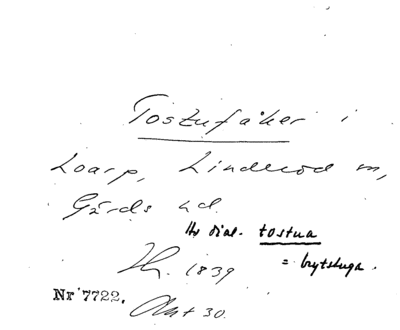 Tostufåker i
Loarp, Linderöd sn,
Gärds hd.
Hs dial. tostua
= brytstuga.
Th. 1839
Nr 7722. Akt 30.